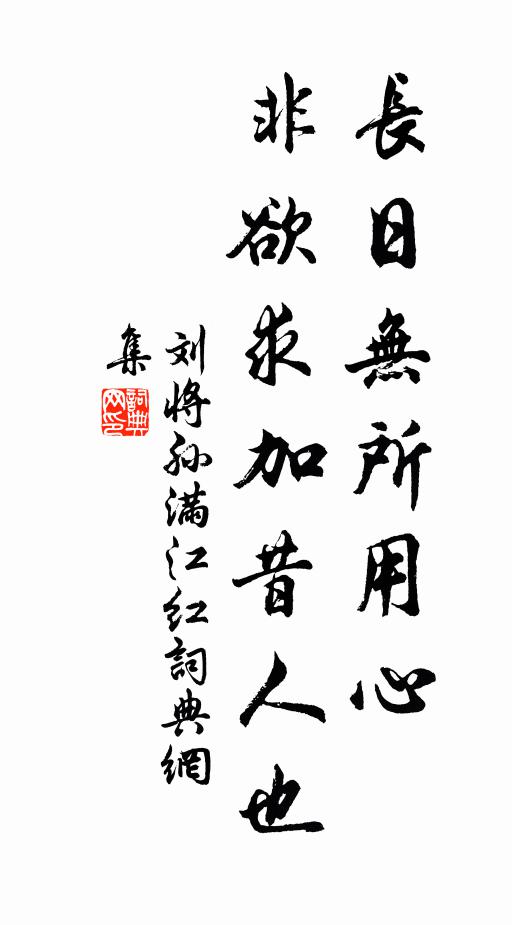 長日無所用心
非欲求加昔人也
刘将孙满江红詞典網
集
詞典網印